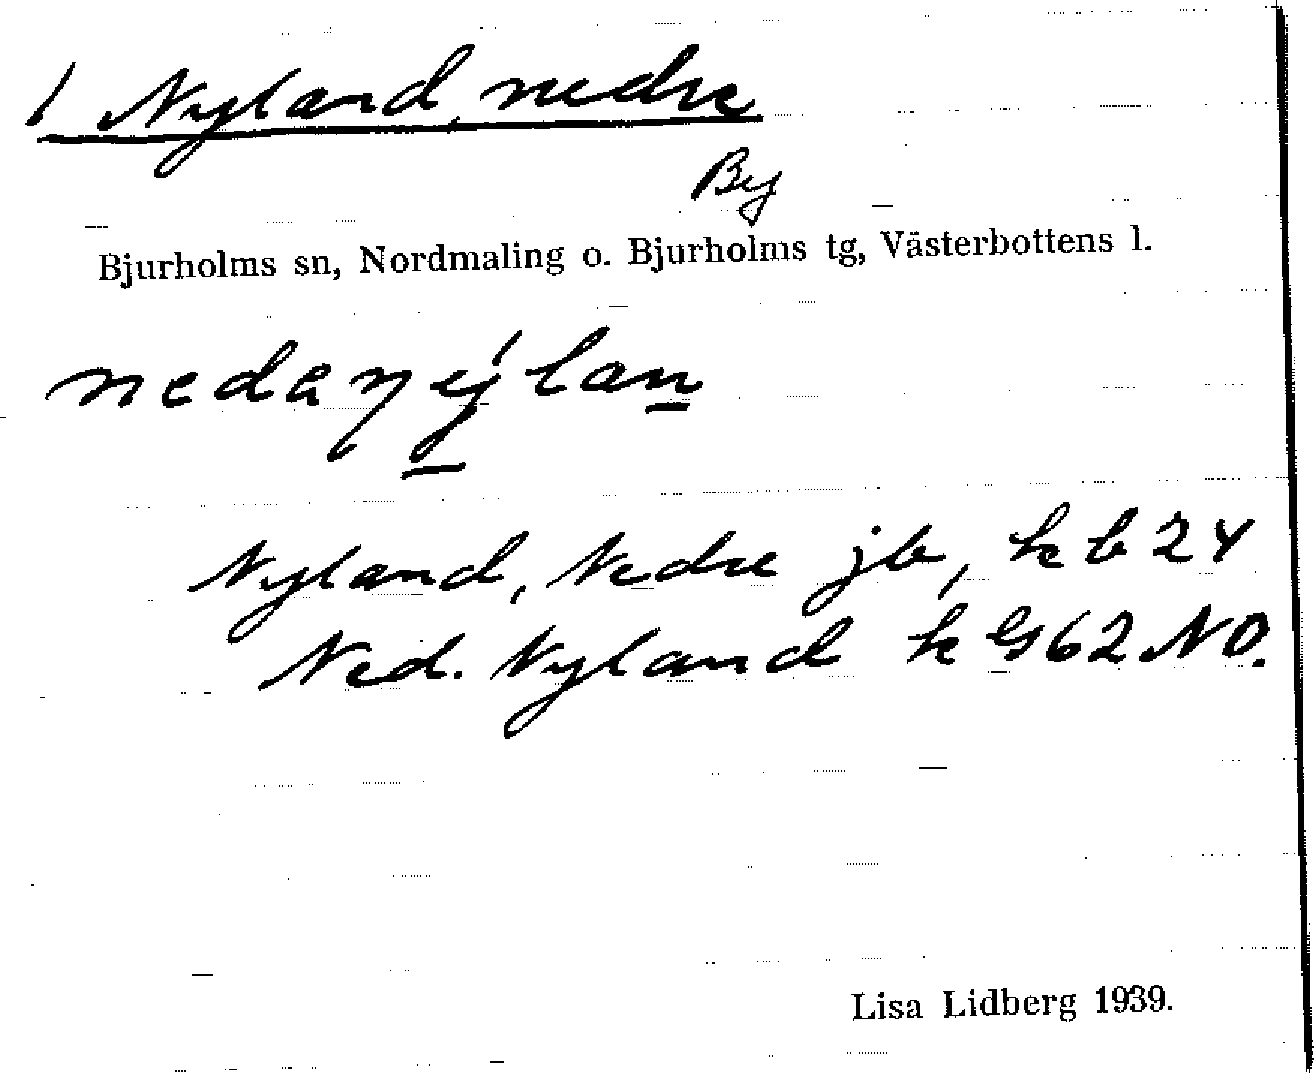 1 Nyland, nedre
By
Bjurholms sn, Nordmaling o. Bjurholms tg, Västerbottens l.
Nyland, Nedre jb, kb 24
Ned. Nyland k G62 NO.
Lisa Lidberg 1939.